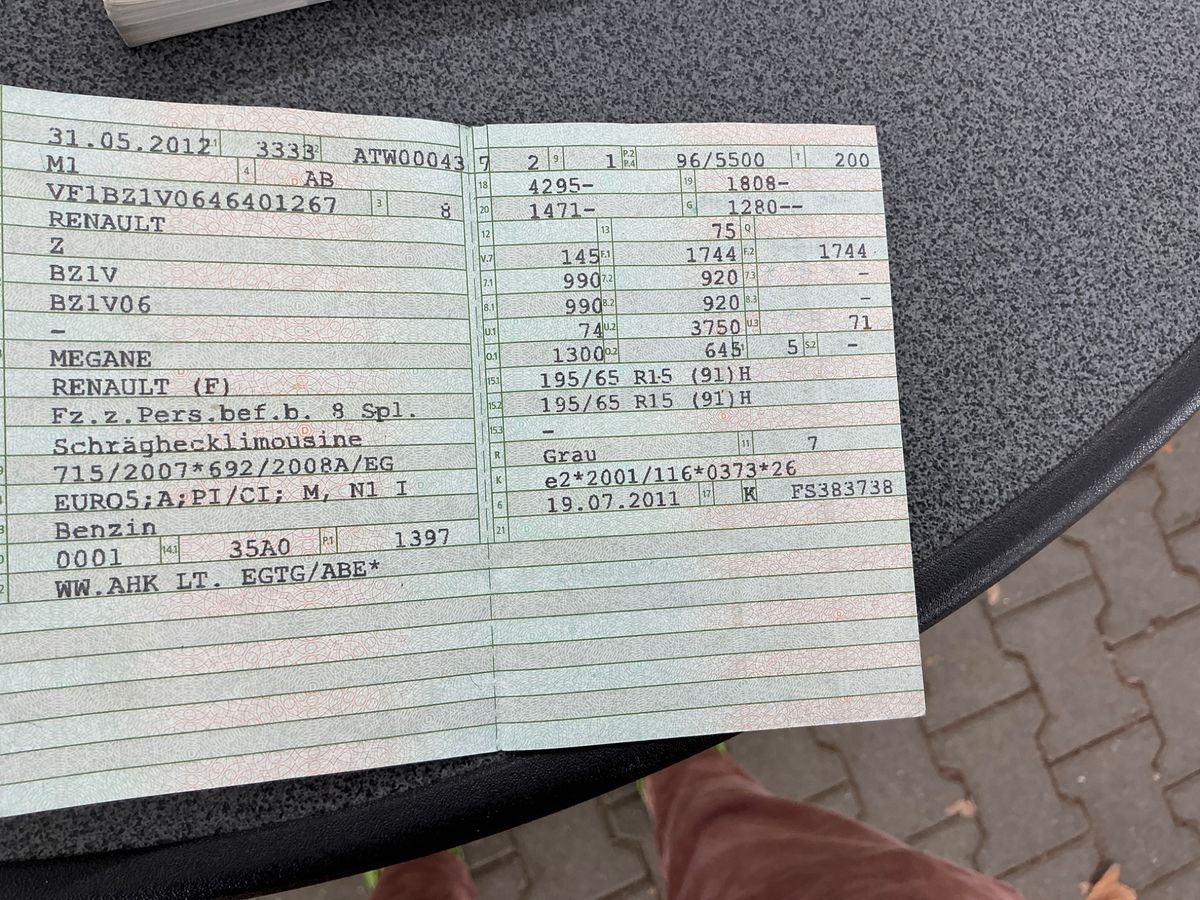 31.05.2012 2.1 3333 2.2 ATW00043 7
M1 4 AB
VF1BZ1V0646401267 3 8
RENAULT
Z
BZ1V
BZ1V06
–
MEGANE
RENAULT (F)
Fz.z.Pers.bef.b. 8 Spl.
Schräghecklimousine
715/2007*692/2008A/EG
EURO5;A;PI/CI; M, N1 I
Benzin
0001 14.1 35A0 P.1 1397
WW.AHK LT. EGTG/ABE*
2 9 1 P.2 P.4 96/5500 T 200
18 4295- 19 1808-
20 1471- G 1280--
12 13 75 Q
V.7 145 F.1 1744 F.2 1744
7.1 990 7.2 920 7.3 –
8.1 990 8.2 920 8.3 –
U.1 74 U.2 3750 U.3 71
O.1 1300 O.2 645 S.1 5 S.2 –
15.1 195/65 R15 (91)H
15.2 195/65 R15 (91)H
15.3 –
R Grau 11 7
K e2*2001/116*0373*26
6 19.07.2011 17 K FS383738
21